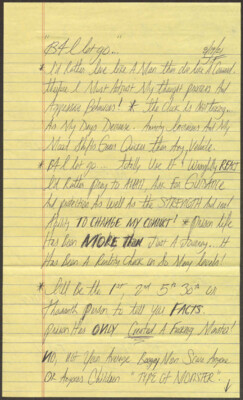 "B4 I let go."
* I'd Rather live like A Man then die like A Coward.
therefore I Must Adjust My thought process And
Aggressive Behaviors! * The Clock Is Notoring.
As My Days Decrease. Anxiety Increases And My
Mind Shifts Gears Quicker then Any Vehicle.
* B4 I let go totally Use it Wrongfully, REALLY
I'd Rather pray to Ask for GUIDANCE
And protection As well As the STRENGTH And
TO CHANGE MY CONDUCT! * prison life
Has Been MORE THEN Just A Journey... It
Has Been A Reality Check on So Many levels!
* I'll Be the 1st, 2nd 5th 30th or
thousandth person to tell you FACTS.
prison Has ONLY Created A Fucking Monster!
NO, Not Your Average Boogey Man Scare Anyone
OR Anyones Children "TYPE OF MONSTER".